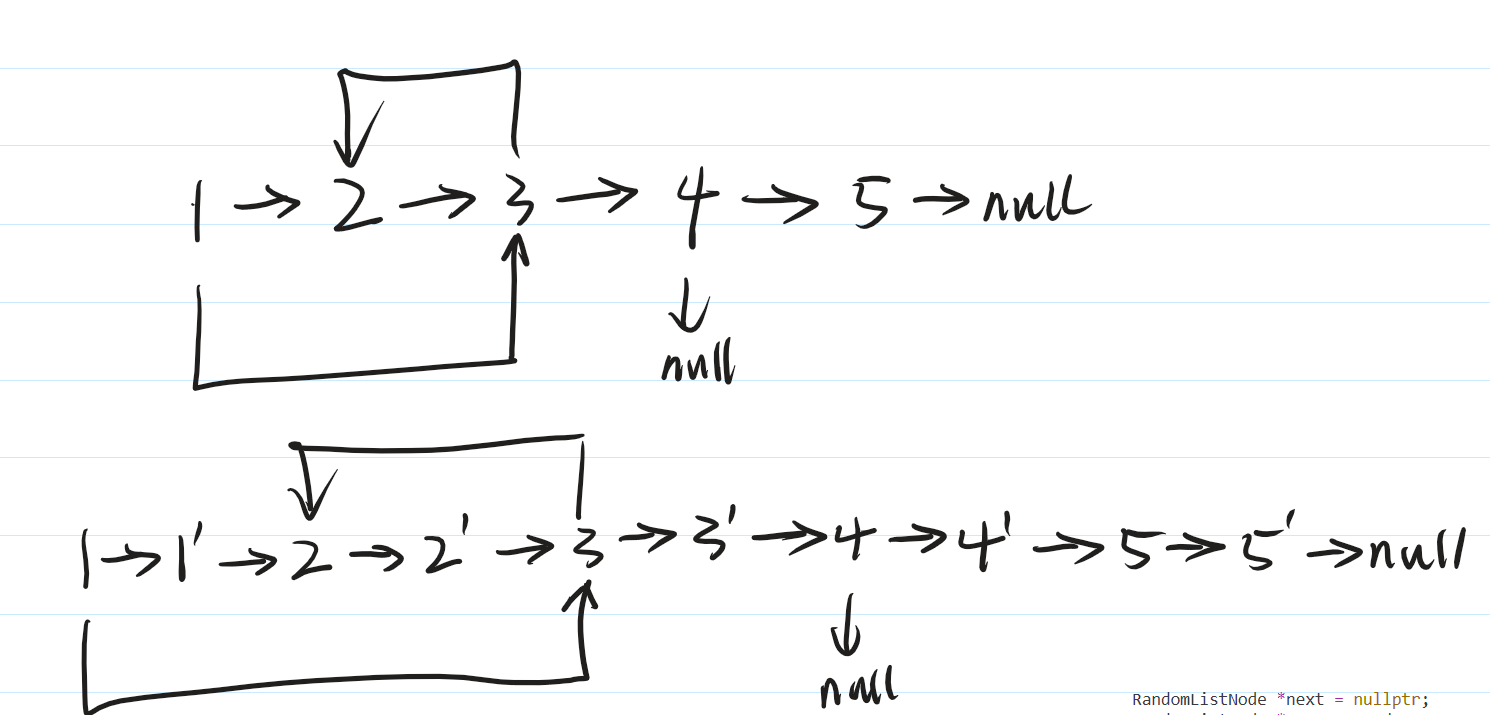 1 → 2 → 3 → 4 → 5 → null
null
1 → 1' → 2 → 2' → 3 → 3' → 4 → 4' → 5 → 5' → null
null
RandomListNode *next = nullptr;